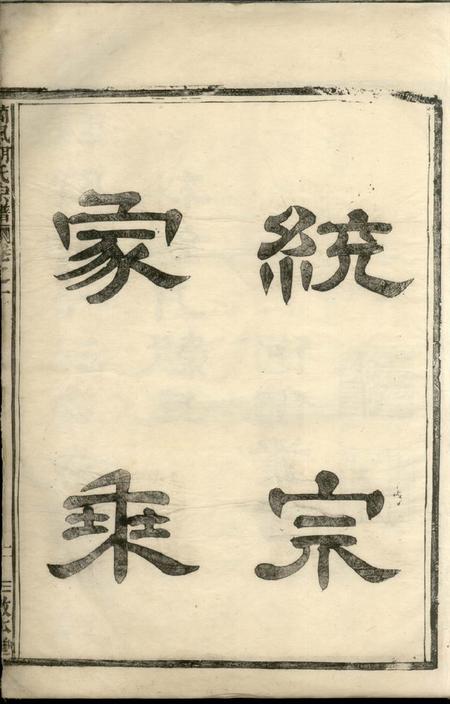 統宗
家乘